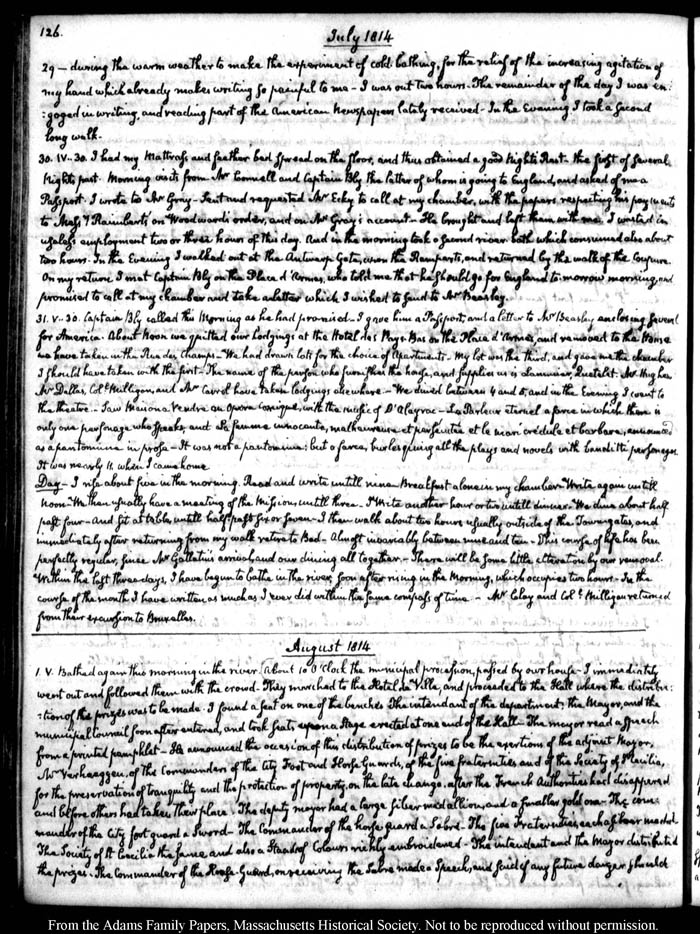 126.
July 1814
29 — during the warm weather to make the experiment of cold bathing, for the relief of the increasing agitation of
my hand which already makes writing so painful to me — I was out two hours. The remainder of the day I was en-
:gaged in writing, and reading part of the American Newspapers lately received — In the Evening I took a second
long walk.
30. IV-30. I had my Mattrass and feather bed spread on the floor, and thus obtained a good Nights Rest. the first of several
Nights past. Morning visits from Mr Connell and Captain Bly the latter of whom is going to England, and asked of me a
Passport. I wrote to Mr Gray — Sent and requested Mr Ecky to call at my chamber, with the papers respecting his payments
to Mess.s Raimbarts on Woodward's order, and on Mr Gray's account — He brought and left them with me. I wasted in
useless employment two or three hours of this day. And in the morning took a second river bath which consumed also about
two hours. In the Evening I walked out at the Antwerp Gate, over the Ramparts, and returned by the walk of the Coupure.
On my return I met Captain Bly on the Place d'Armes, who told me that he should go for England to-morrow morning, and
promised to call at my chamber and take a letter which I wished to send to Mr Beasley.
31. V-30. Captain Bly called this Morning as he had promised — I gave him a Passport, and a letter to Mr Beasley enclosing several
for America. About Noon we quitted our Lodgings at the Hotel des Pays-Bas on the Place d'Armes, and removed to the House
we have taken in the Rue des Champs — We had drawn lots for the choice of Apartments — My lot was the third, and gave me the chamber
I should have taken with the first — The name of the person who furnishes the house, and supplies us is Lannuier, Quetelet. Mr Hughes
Mr Dallas, Col.l Milligan, and Mr Carrol have taken lodgings elsewhere — We dined between 4 and 5, and in the Evening I went to
the theatre — Saw Maison a Vendre an Opera Comique, with the music of D'Alayrac — Le Parleur eternel a farce in which there is
only one personage who speaks, and La femme innocente, malheureuse et persecutée et le mari crédule et barbare, announced
as a pantomime in prose — It was not a pantomime; but a farce, burlesquing all the plays and novels with banditti personages
It was nearly 11. when I came home
Day — I rise about five in the morning. Read and write untill nine — Breakfast alone in my chamber — Write again untill
Noon — We then usually have a meeting of the Mission, untill three. I write another hour or two untill dinner. We dine about half
past four — And sit at table, untill half past six or seven — I then walk about two hours usually outside of the Town gates, and
immediately after returning from my walk retire to Bed — Almost invariably between nine and ten — This course of life has been
perfectly regular, since Mr Gallatin's arrival, and our dining all together — There will be some little alteration by our removal.
Within the last three days, I have begun to bathe in the river, soon after rising in the Morning, which occupies two hours — In the
course of the month I have written as much as I ever did within the same compass of time — Mr Clay and Col.l Milligan returned
from their excursion to Bruxelles.
August 1814
1. V. Bathed again this morning in the river. About 10 O'Clock the municipal procession, passed by our house — I immediately
went out and followed them with the crowd. They marched to the Hotel de Ville, and proceeded to the Hall where the distribu-
:tion of the prizes was to be made. I found a seat on one of the benches. The intendant of the department, the Mayor, and the
municipal council soon after entered, and took seats upon a stage erected at one end of the Hall — The mayor read a speech
from a printed pamphlet — He announced the occasion of this distribution of prizes to be the exertions of the adjoint Mayor,
Mr Verhaeggen, of the Commanders of the City Foot and Horse Guards, of the five fraternities and of the Society of St Cecilia,
for the preservation of tranquility and the protection of property, on the late change, after the French Authorities had disappeared
and before others had taken their place. The deputy mayor had a large silver medallion, and a smaller gold one — The com-
mander of the City foot guard a Sword — The Commander of the horse guard a Sabre. The five Fraternities, each of them a medal
The Society of St Cecilia the same and also a Stand of Colours richly embroidered — The intendant and the Mayor distributed
the prizes. The Commander of the Horse-Guard, on receiving the Sabre made a Speech, and said if any future danger should
From the Adams Family Papers, Massachusetts Historical Society. Not to be reproduced without permission.